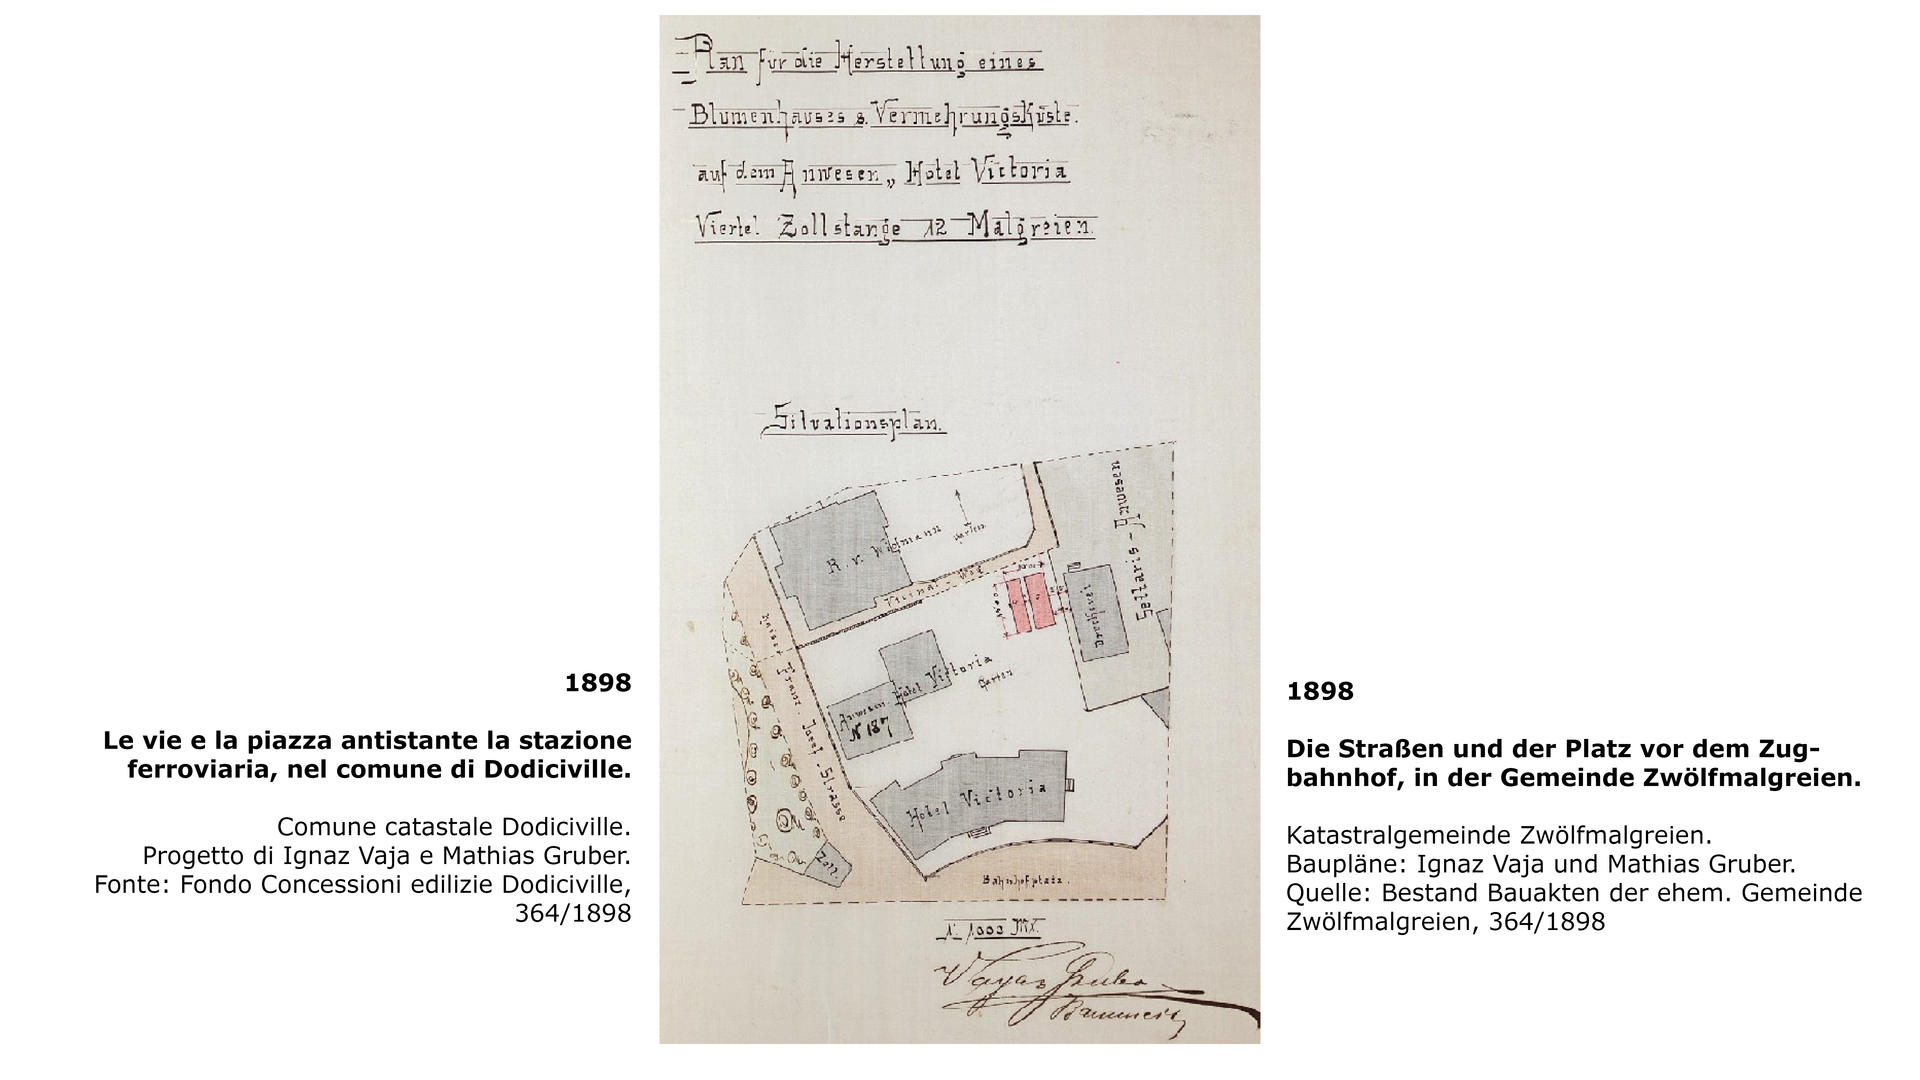 Plan für die Herstellung eines
Blumenhauses & Vermehrungsküste.
auf dem Anwesen „ Hotel Victoria
Viertel Zollstange 12 Malgreien.
Situationsplan.
R. v. Widmann
Garten
Vicinal-Weg
Anwesen
Kaiser Franz-Josef-Strasse
Hotel Victoria
Garten
Anwesen.
N 187
Hotel Victoria
Zoll.
Bahnhofplatz.
1: 1000 Mx.
1898
Le vie e la piazza antistante la stazione
ferroviaria, nel comune di Dodiciville.
Comune catastale Dodiciville.
Progetto di Ignaz Vaja e Mathias Gruber.
Fonte: Fondo Concessioni edilizie Dodiciville,
364/1898
1898
Die Straßen und der Platz vor dem Zug-
bahnhof, in der Gemeinde Zwölfmalgreien.
Katastralgemeinde Zwölfmalgreien.
Baupläne: Ignaz Vaja und Mathias Gruber.
Quelle: Bestand Bauakten der ehem. Gemeinde
Zwölfmalgreien, 364/1898